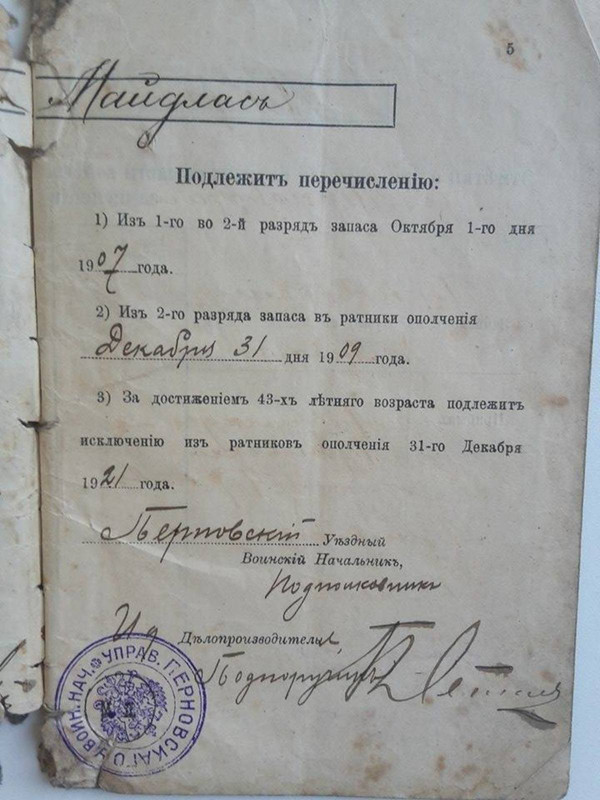 5
Майдласъ
Подлежитъ перечисленію:
1) Изъ 1-го во 2-й разрядъ запаса Октября 1-го дня
1907 года.
2) Изъ 2-го разряда запаса въ ратники ополченія
Декабря 31 дня 1909 года.
3) За достиженіемъ 43-хъ лѣтняго возраста подлежитъ
исключенію изъ ратниковъ ополченія 31-го Декабря
1921 года.
Перновскій Уѣздный
Воинскій Начальникъ,
Подполковникъ
И д Дѣлопроизводителя
Подпоручикъ
УПРАВ. ПЕРНОВСКАГО ВОИН. НАЧ.